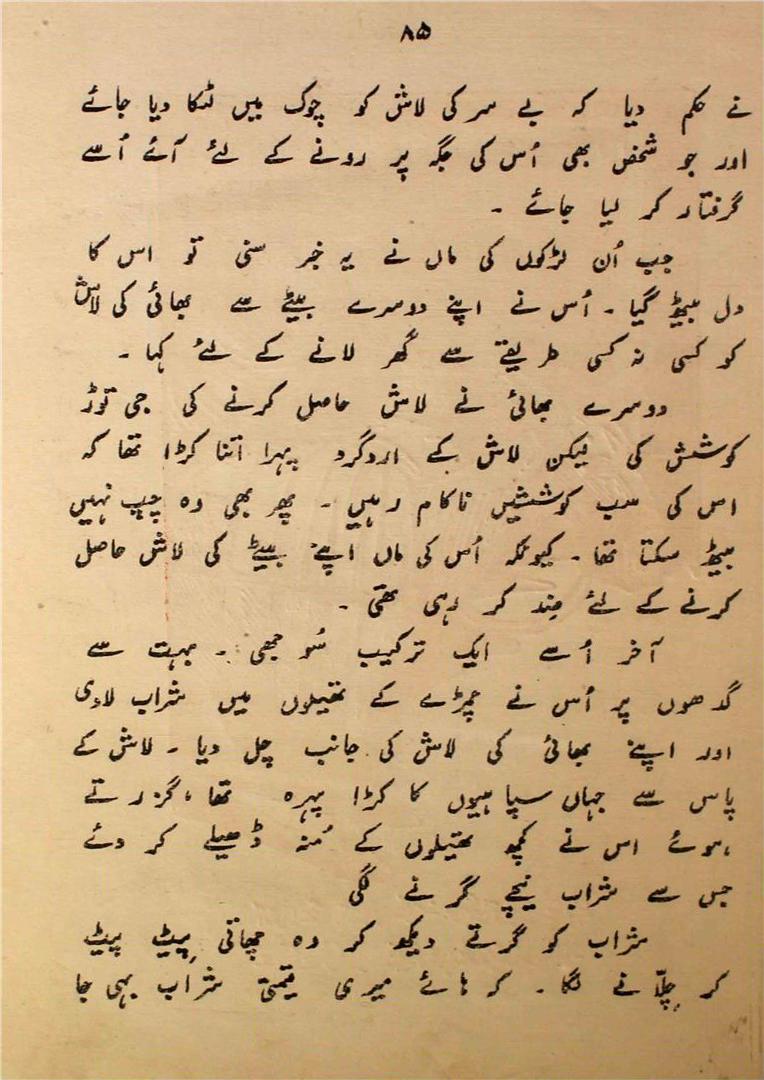 ۸۵
نے حکم دیا کہ بے سر کی لاش کو چوک میں لٹکا دیا جائے
اور جو شخص بھی اُس کی جگہ پر رونے کے لئے آئے اُسے
گرفتار کر لیا جائے ۔
جب اُن لڑکوں کی ماں نے یہ خبر سنی تو اس کا
دل بیٹھ گیا ۔ اُس نے اپنے دوسرے بیٹے سے بھائی کی لاش
کو کسی نہ کسی طریقے سے گھر لانے کے لئے کہا ۔
دوسرے بھائی نے لاش حاصل کرنے کی جی توڑ
کوشش کی لیکن لاش کے اردگرد پہرا اتنا کڑا تھا کہ
اس کی سب کوششیں ناکام رہیں ۔ پھر بھی وہ چپ نہیں
بیٹھ سکتا تھا ۔ کیونکہ اُس کی ماں اپنے بیٹے کی لاش حاصل
کرنے کے لئے ضد کر رہی تھی ۔
آخر اُسے ایک ترکیب سُوجھی ۔ بہت سے
گدھوں پر اُس نے چمڑے کے تھیلوں میں شراب لادی
اور اپنے بھائی کی لاش کی جانب چل دیا ۔ لاش کے
پاس سے جہاں سپاہیوں کا کڑا پہرہ تھا ، گزرتے
ہوئے اس نے کچھ تھیلوں کے مُنہ ڈھیلے کر دئے
جس سے شراب نیچے گرنے لگی
شراب کو گرتے دیکھ کر وہ چھاتی پِیٹ پِیٹ
کر چِلّانے لگا ۔ کہ ہائے میری قیمتی شراب بہی جا